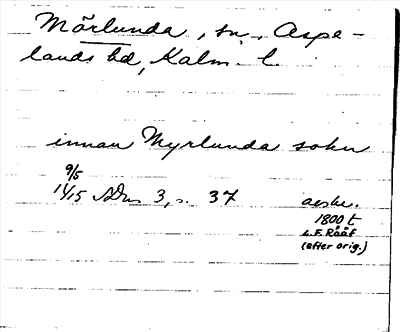 Mörlunda, sn., Aspe-
lands hd, Kalm. l.
innan Myrlunda sokn
9/5
1415 SDns 3, s. 37
avskr.
1800 t
L.F. Rääf
(efter orig.)